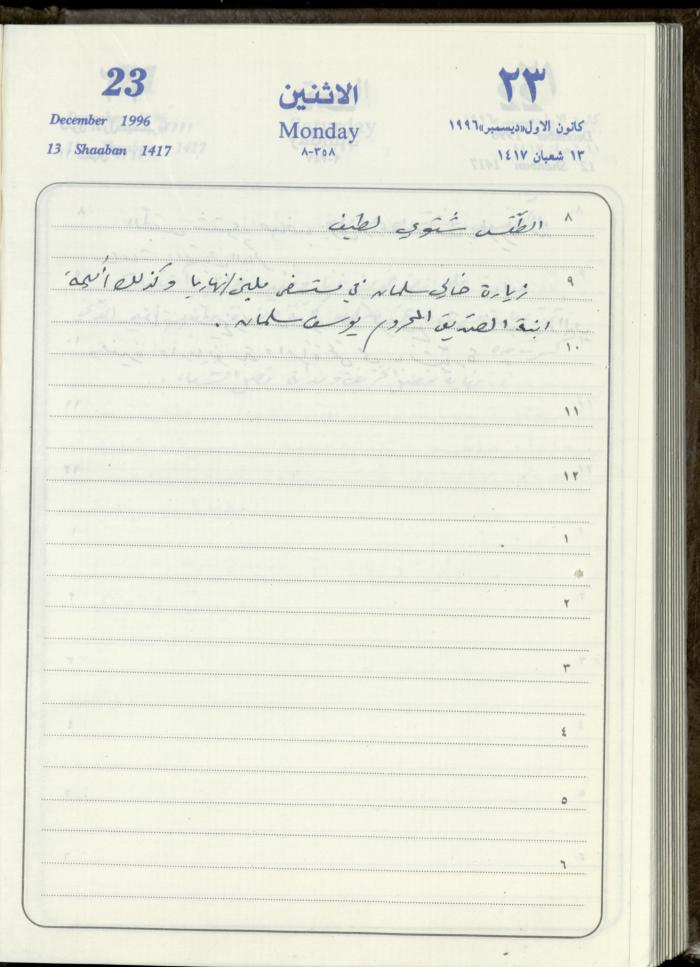 23 الاثنين ٢٣
December 1996 Monday كانون الاول«ديسمبر»١٩٩٦
13 Shaaban 1417 ٣٥٨-٨ ١٣ شعبان ١٤١٧
٨ الطقس شتوي لطيف
٩ زيارة خالي سلمان في مستشفى نهاريا وكذلك
ابنة الصديق المرحوم يوسف سلمان .
١٠
١١
١٢
١
٢
٣
٤
٥
٦